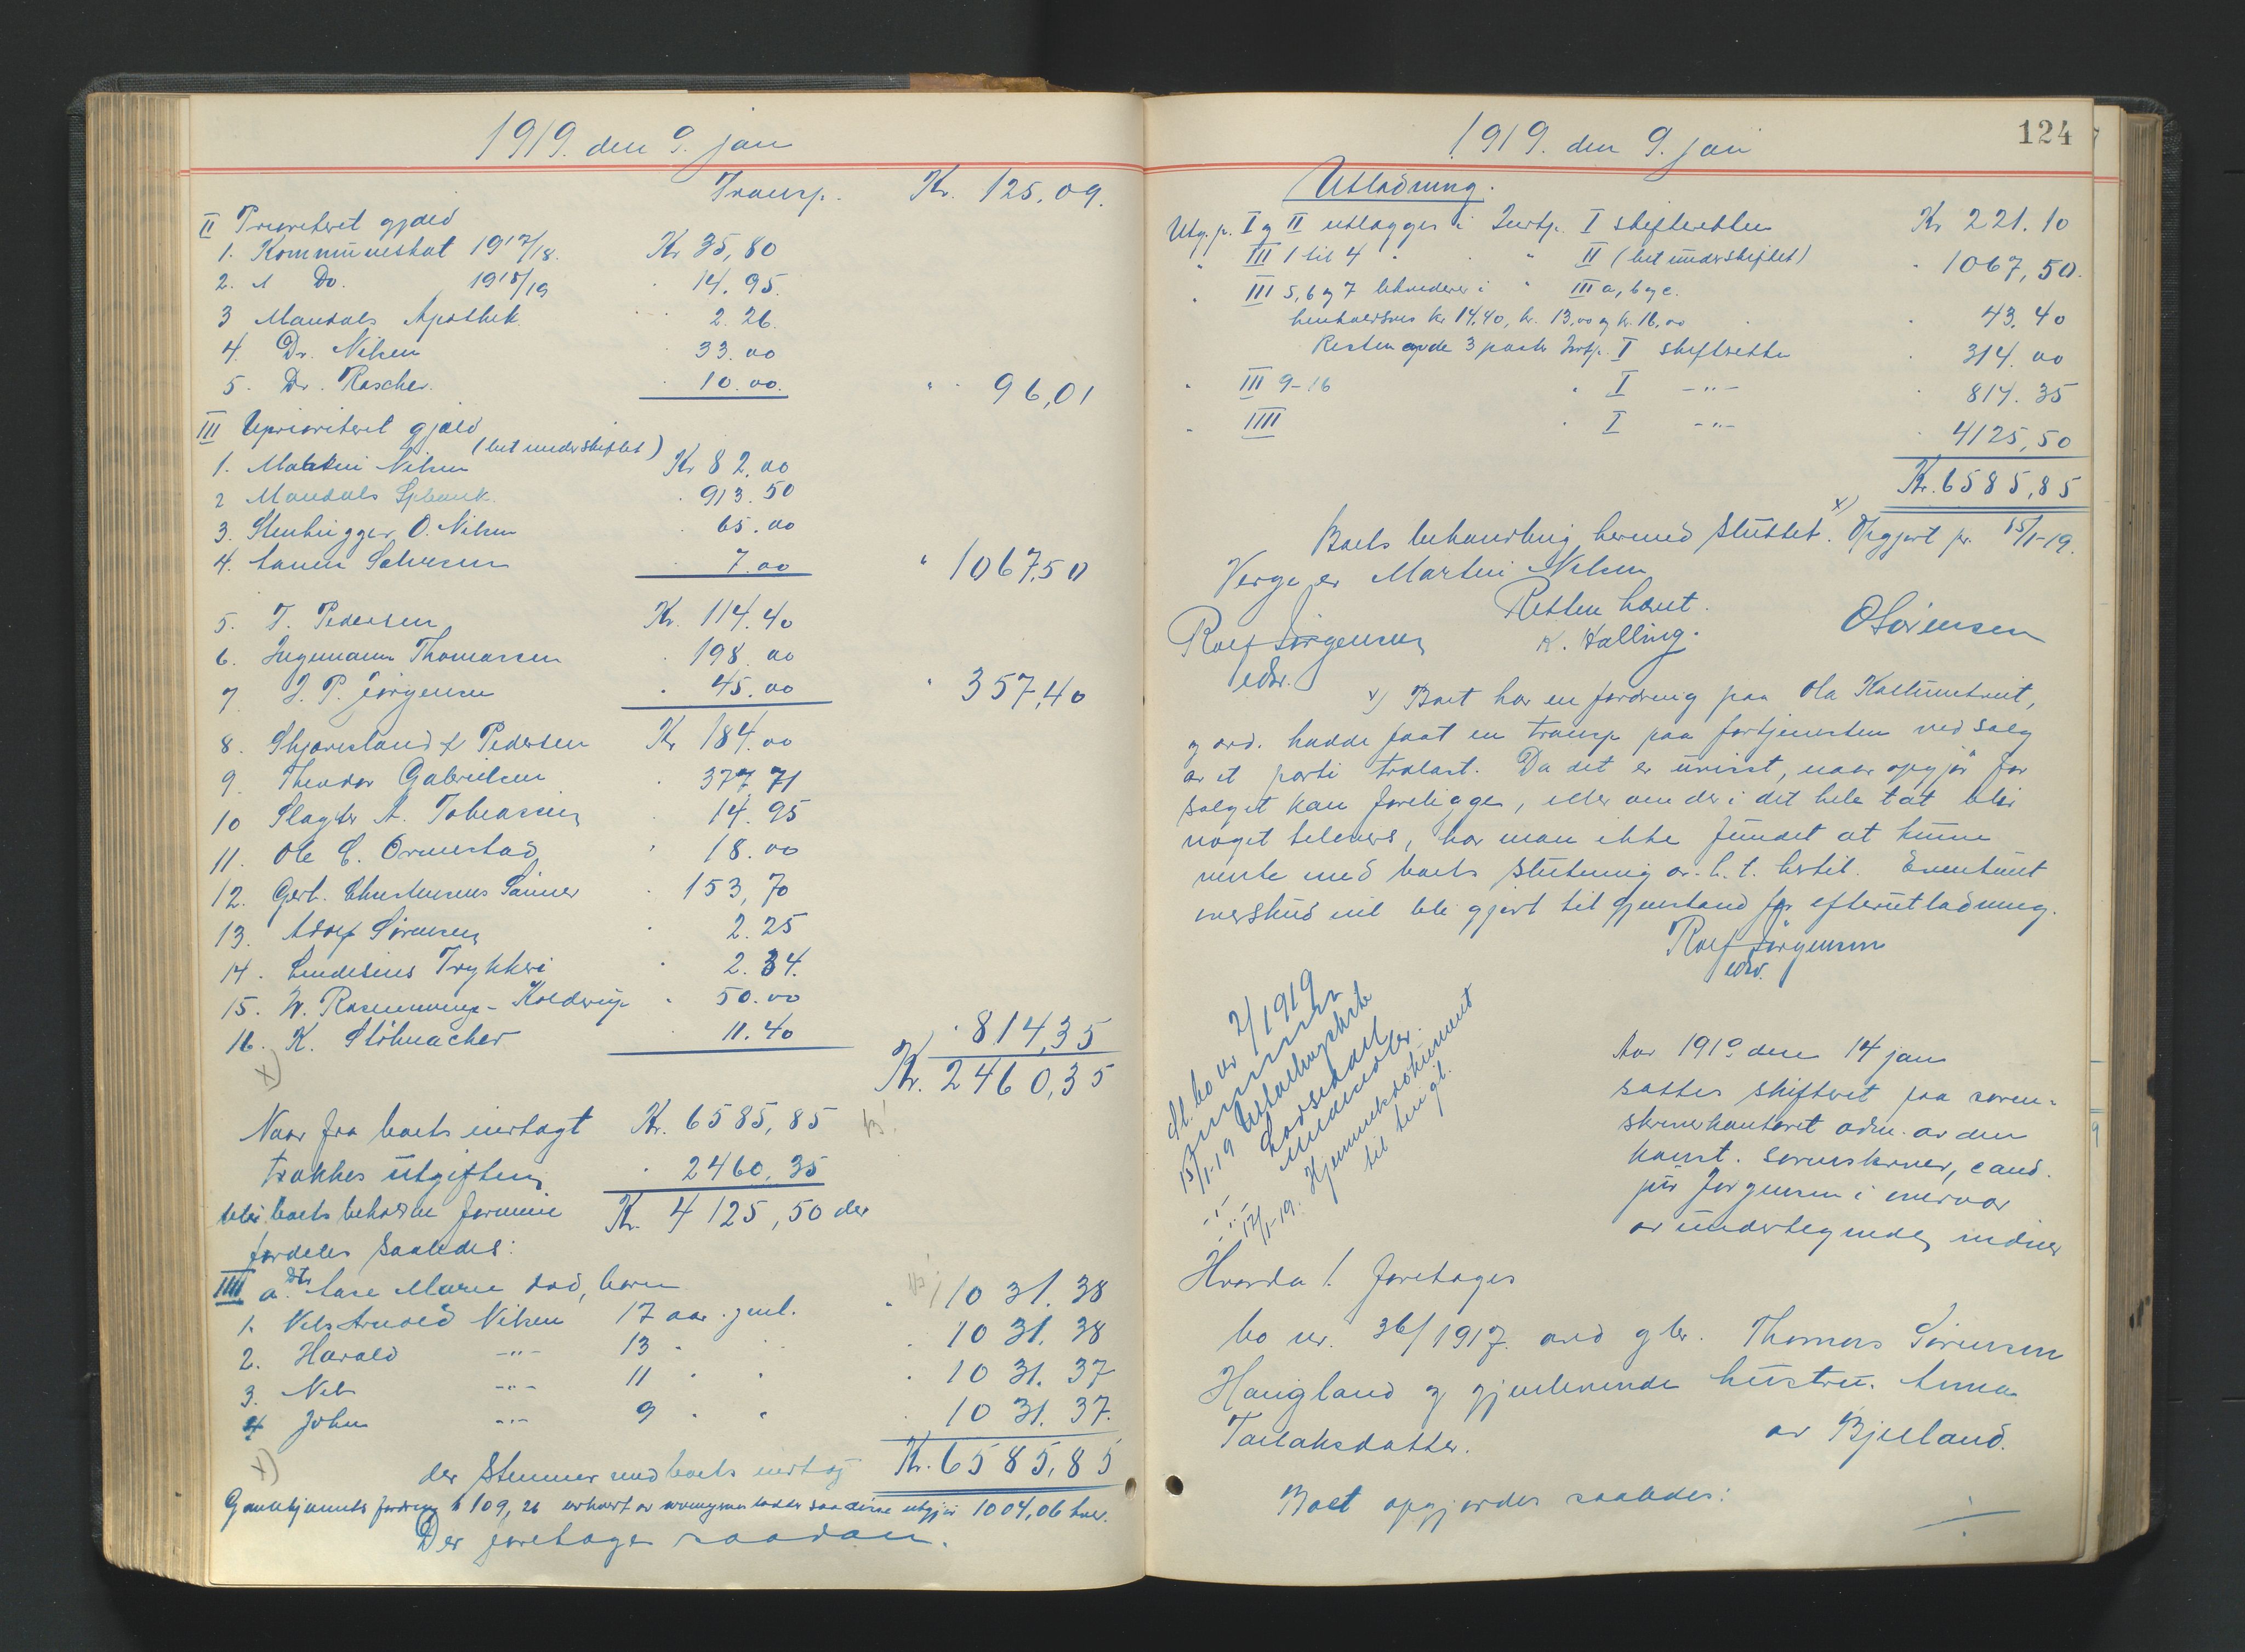 1919. den 9. jan
Transp. Kr. 125,09.
II Prioritert gjæld
1. Kommuneskat 1917/18. Kr 35,80
2. Do. 1918/19 14.95.
3 Mandals Apothek 2.26.
4. Dr. Nilsen 33.00
5. Dr. Roscher. 10.00. " 96,01
III Uprioritert gjæld
(bet under skiftet)
1. Martin Nilsen Kr 82.00
2 Mandals Spbank. 913.50
3. Stenhugger O. Nilsen 65.00
4. Salvesen 7.00 " 1067,50
5. T. Pedersen Kr. 114.40
6. Ingemann Thomassen 198.00
7 J. P. Jørgensen 45.00 " 357,40
8. Skjævesland & Pedersen Kr 184.00
9. Theodor Gabrielsen 377,71
10 Slagter A. Tobiassen 14.95
11. Ole C. Ormestad 18.00
12. Gert. Christensens Sønner 153,70
13. Adolf Sørensen 2.25
14. Lindesnes Trykkeri 2.34.
15. W. Rosenvinge-Kolderup 50.00
16. K. Stöhmacher 11.40 814,35
x) Kr. 2460,35
Naar fra boets indtægt Kr. 6585,85
trækkes utgiften 2460.35
blir boets beholdne formue Kr. 4125,50 der
fordeles saaledes:
IIII a. Dtr Aase Marie død, barn
1. Nils Arnold Nilsen 17 aar gml. " 1031.38
2. Harald -"- 13 " 1031.38
3. Nils -"- 11 " " 1031.37
4 John -"- 9 " " 1031.37.
x) der stemmer med boets indtægt Kr. 6585,85
fordring 109,26 utgjør 1004,06 hver.
Der foretages saadan.
124
1919. den 9. jan
Utlodning.
Utg.p. I og II utlægges i Indtp. I skifteretten Kr 221.10
" III 1 til 4 " " II (bet under skiftet) " 1067,50.
" III 5, 6 og 7 likvideres i " III a, b og c.
henholdsvis kr 14.40, kr. 13,00 og kr. 16,00 43,40
Resten av de 3 poster Indtp. I skifteretten 314.00
" III 9-16 " I -"- 814.35
" IIII " I -"- 4125,50
Kr. 6585,85
Boets behandling hermed sluttet. x) Opgjort pr. 15/1-19.
Verge er Martin Nilsen
Retten hævet.
Rolf Jørgensen K. Halling. O Sørensen
edsv.
x) Boet har en fordring paa Ola
og ord. hadde faat en transp paa fortjenesten ved salg
av et parti trælast. Da det er uvisst, naar opgjør for
salget kan foreligge, eller om der i det hele tat blir
noget tilovers, har man ikke fundet at kunne
vente med boets slutning av h. t. hertil. Eventuelt
overskud vil bli gjort til gjenstand for efterutlodning.
Rolf Jørgensen
edsv.
Sl. bo nr 2/1919
15/1-19 Utlodning
12/1-19. Hjemmelsdokument
til tingl.
Aar 1919 den 14 jan
sattes skifteret paa soren-
skriverkontoret adm. av den
konst. sorenskriver, cand.
jur Jørgensen i overvær
av undertegnede vidner
Hvorda 1. foretages
bo nr. 36/1917. avd gbr. Thomas Sørensen
Haugland og gjenlevende hustru Anna
Tarlaksdatter. av Bjelland.
Boet opgjordes saaledes: